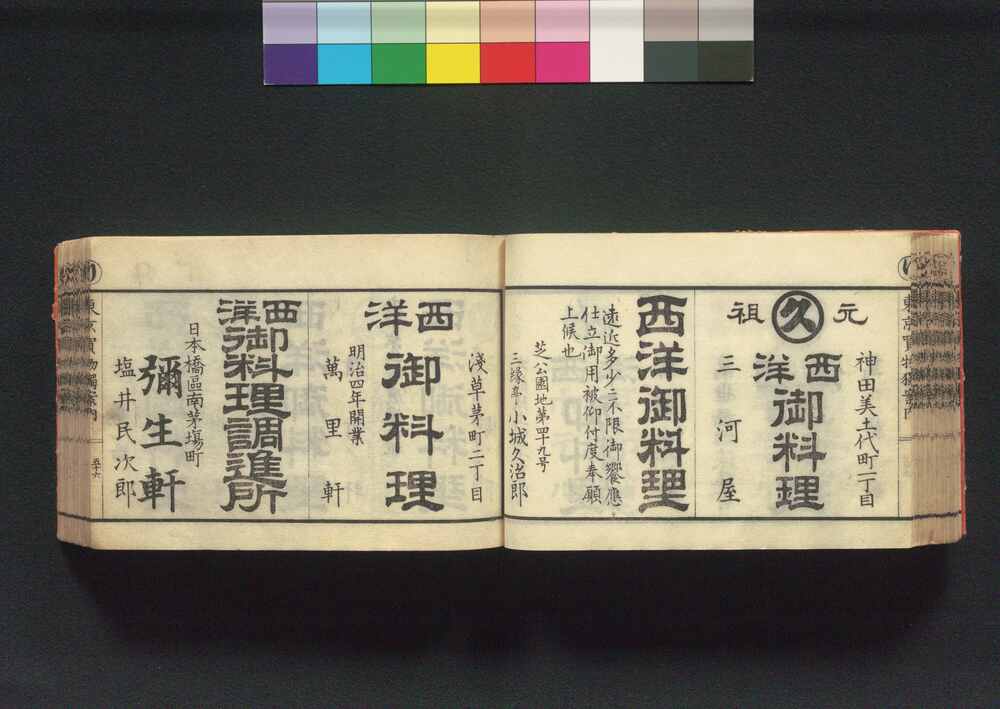 東京買物獨案内
神田美土代町二丁目
元祖
久
西洋御料理
三河屋
西洋御料理
遠近多少ニ不限御饗應
仕立御用被仰付度奉願
上候也
芝公園地第四十九号
三縁亭 小城久治郎
淺草茅町二丁目
西洋御料理
明治四年開業
萬里軒
西洋御料理調進所
日本橋區南茅塲町
彌生軒
塩井民次郎
東京買物獨案内
五十六